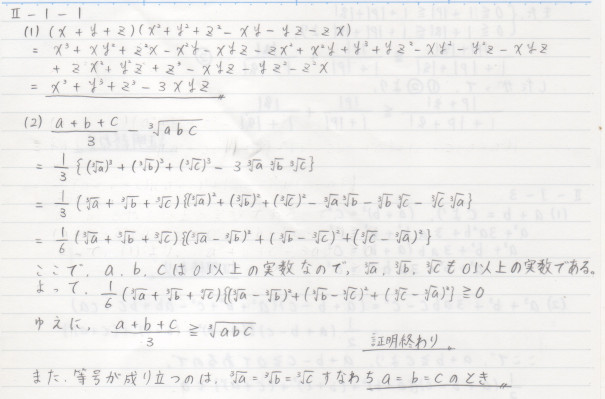 II-1-1
(1) (x+y+z)(x²+y²+z²-xy-yz-zx)
= x³+xy²+z²x-x²y-xyz-zx²+x²y+y³+yz²-xy²-y²z-xyz
+zx²+y²z+z³-xyz-yz²-z²x
= x³+y³+z³-3xyz 〃
(2) (a+b+c)/3 - ³√(abc)
= 1/3 {(³√a)³+(³√b)³+(³√c)³-3 ³√a ³√b ³√c}
= 1/3 (³√a+³√b+³√c){(³√a)²+(³√b)²+(³√c)²-³√a ³√b-³√b ³√c-³√c ³√a}
= 1/6 (³√a+³√b+³√c){(³√a-³√b)²+(³√b-³√c)²+(³√c-³√a)²}
ここで、a、b、cは0以上の実数なので、³√a、³√b、³√cも0以上の実数である。
よって、1/6 (³√a+³√b+³√c){(³√a-³√b)²+(³√b-³√c)²+(³√c-³√a)²}≧0
ゆえに、(a+b+c)/3 ≧ ³√(abc)
証明終わり。
また、等号が成り立つのは、³√a=³√b=³√c すなわち a=b=c のとき 〃